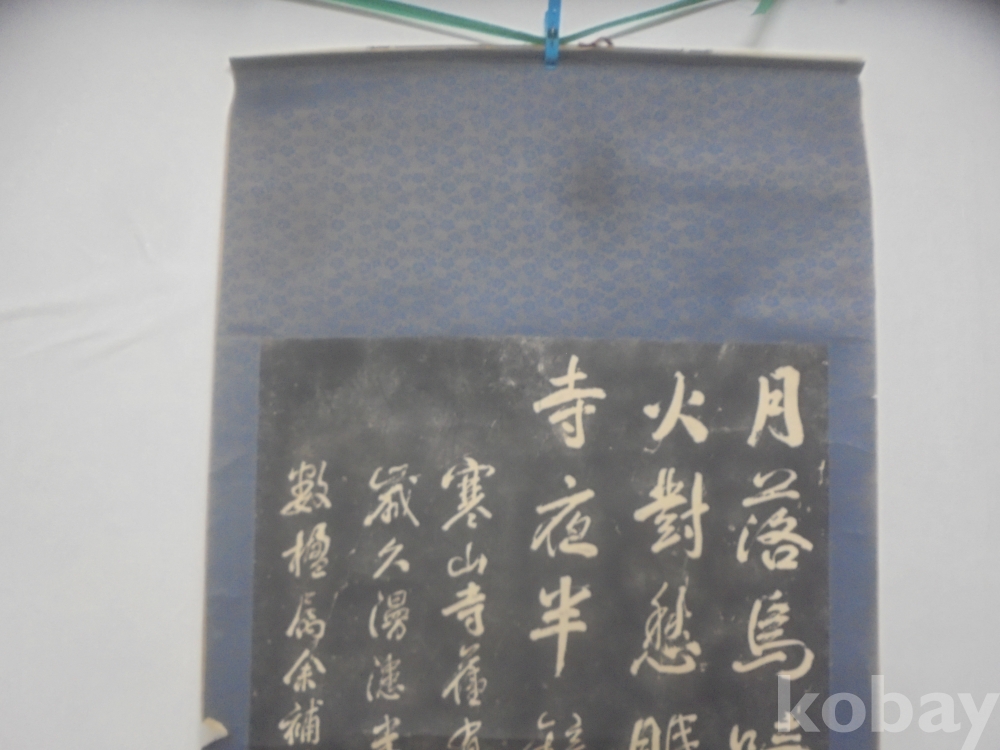 月落烏啼
火對愁眠
寺夜半鐘
寒山寺舊有
歲久漫漶光
數楹屬余補
kobay